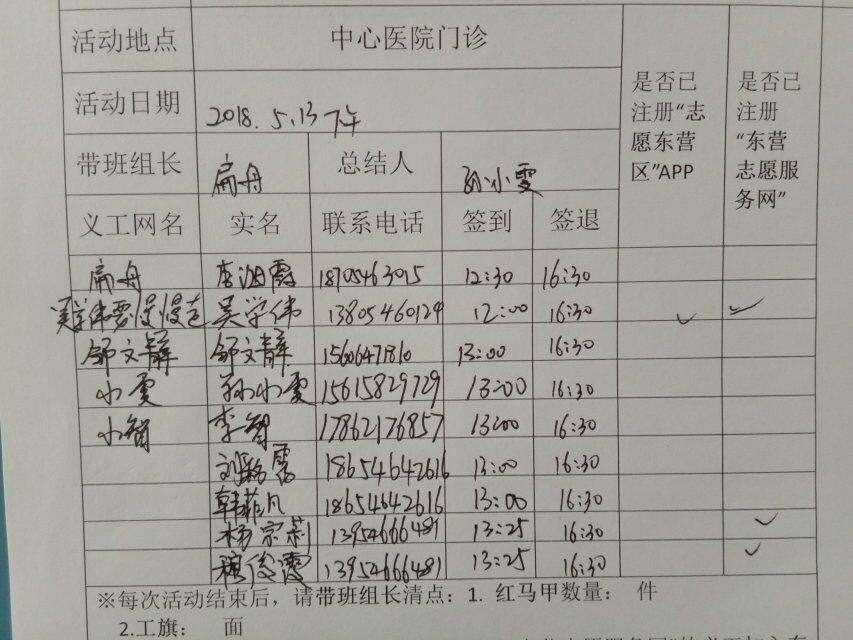 活动地点 中心医院门诊
是否已注册“志愿东营区”APP
是否已注册“东营志愿服务网”
活动日期 2018.5.13下午
带班组长 扁舟 总结人 孙小雯
义工网名 实名 联系电话 签到 签退
扁舟 李湘霞 18705463015 12:30 16:30
吴学伟要慢慢走 吴学伟 13805460129 12:00 16:30
邹文静 邹文静 15606471810 13:00 16:30
小雯 孙小雯 15615829729 13:00 16:30
小智 李智 17862176857 13:00 16:30
18654642616 13:00 16:30
韩菲凡 18654642616 13:00 16:30
杨宗莉 13954666481 13:25 16:30
穆俊霞 13954666481 13:25 16:30
※每次活动结束后，请带班组长清点：1. 红马甲数量： 件
2.工旗： 面